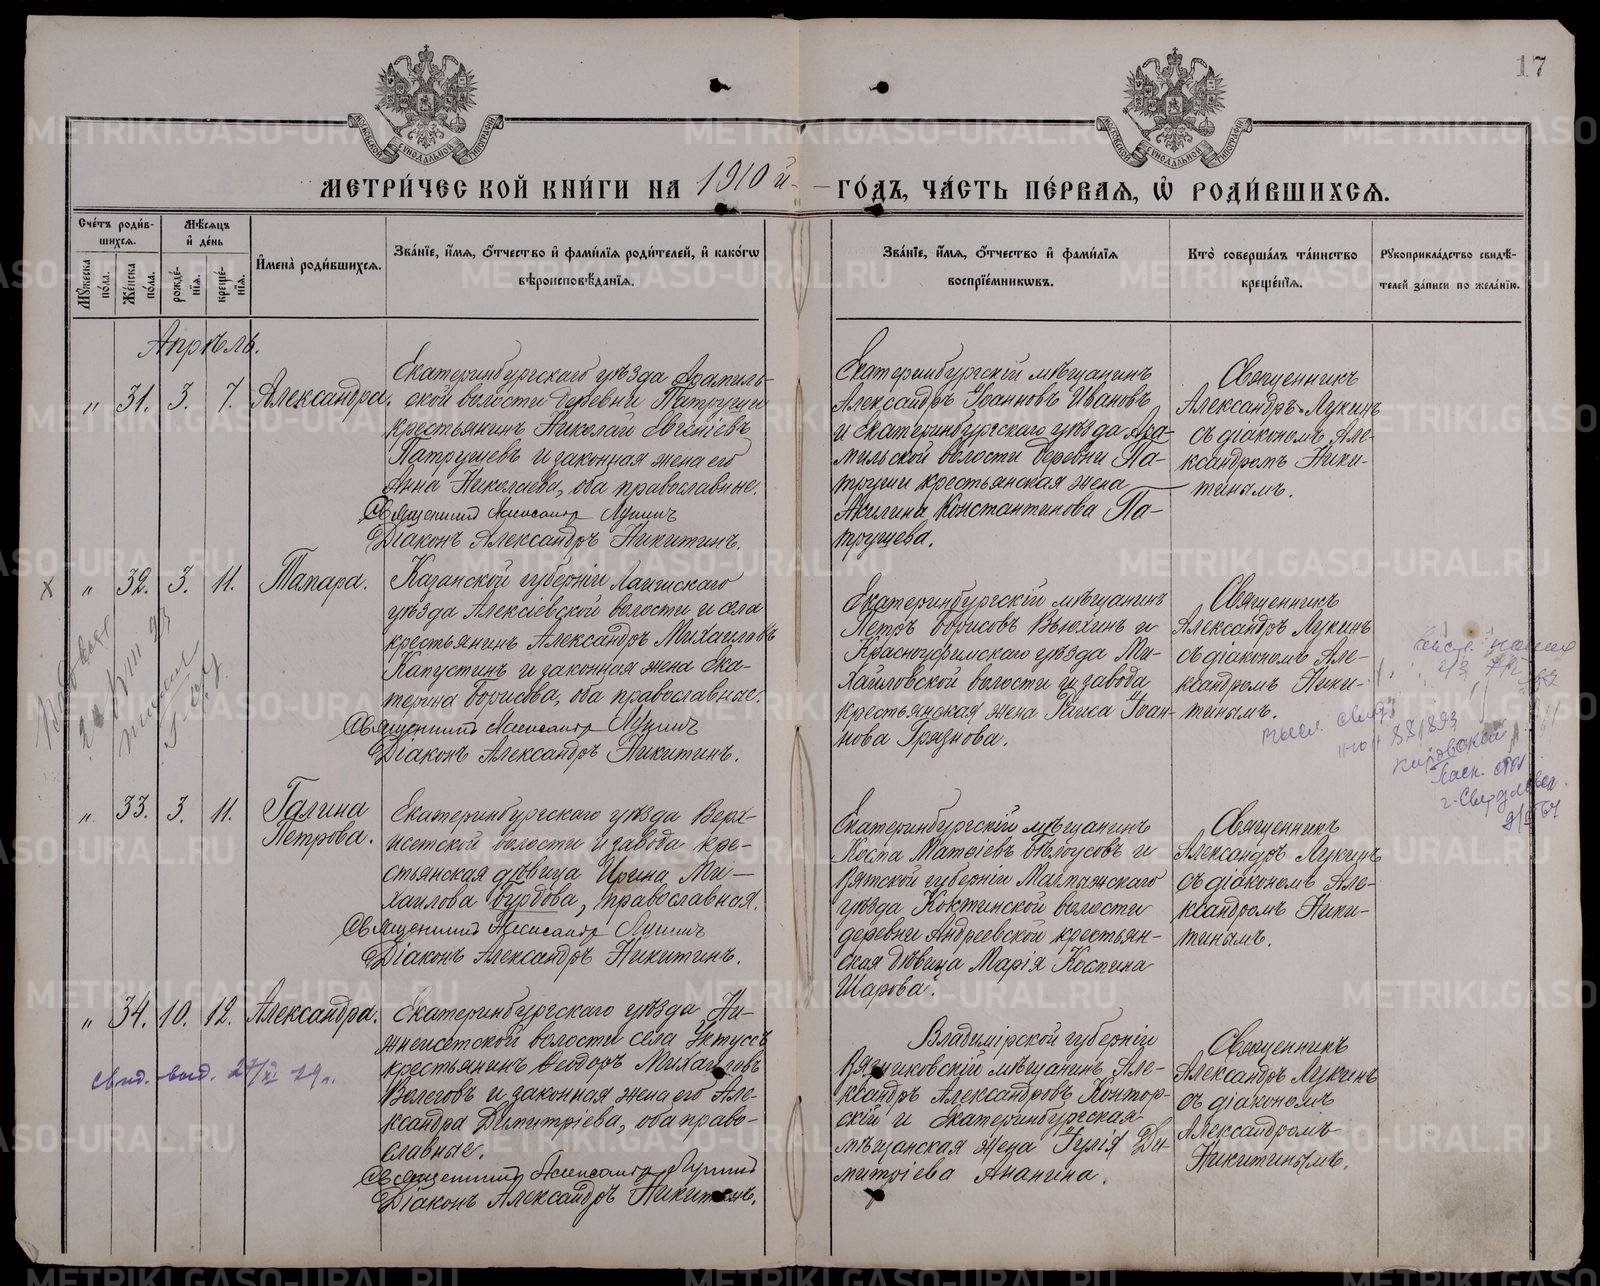 17
МЕТРИ́ЧЕСКОЙ КНИ́ГИ НА 1910й ГО́ДЪ, ЧА́СТЬ ПЕ́РВАЯ, Ѡ РОДИ́ВШИХСЯ.
Сче́тъ роди́вшихся.
Мѣ́сяцъ и де́нь
Мужеска по́ла.
Же́нска по́ла.
рожде́нія.
креще́нія.
Имена̀ роди́вшихся.
Зва́ніе, и́мя, о́тчество и фами́лія роди́телей, и како́гѡ
вѣроисповѣ́данія.
Зва́ніе, и́мя, о́тчество и фами́лія
воспріе́мниковъ.
Кто̀ соверша́лъ та́инство
креще́нія.
Рукоприкла́дство свидѣ́-
телей за́писи по жела́нію.
Апрѣль.
" 31. 3. 7. Александра.
Екатеринбургскаго уѣзда Арамиль-
ской волости деревни Патруши
крестьянинъ Николай Евгеніевъ
Патрушевъ и законная жена его
Анна Николаева, оба православные.
Священникъ Александръ Лукинъ
Діаконъ Александръ Никитинъ.
Екатеринбургскій мѣщанинъ
Александръ Іоанновъ Ивановъ
и Екатеринбургскаго уѣзда Ара-
мильской волости деревни Па-
труши крестьянская жена
Акилина Константинова Па-
трушева.
Священникъ
Александръ Лукинъ
съ діакономъ Але-
ксандромъ Ники-
тинымъ.
" 32. 3. 11. Тамара.
Казанской губерніи Лаишскаго
уѣзда Алексіевской волости и села
крестьянинъ Александръ Михаиловъ
Капустинъ и законная жена Ека-
терина Борисова, оба православные.
Священникъ Александръ Лукинъ
Діаконъ Александръ Никитинъ.
Екатеринбургскій мѣщанинъ
Петръ Борисовъ Вьюхинъ и
Красноуфимскаго уѣзда Ми-
хайловской волости и завода
крестьянская жена Раиса Іоан-
нова Грязнова.
Священникъ
Александръ Лукинъ
съ діакономъ Але-
ксандромъ Ники-
тинымъ.
" 33. 3. 11. Галина
Петрова.
Екатеринбургскаго уѣзда Верх-
исетской волости и завода кре-
стьянская дѣвица Ирина Ми-
хаилова Бурбова, православная.
Священникъ Александръ Лукинъ
Діаконъ Александръ Никитинъ.
Екатеринбургскій мѣщанинъ
Коста Матѳіевъ Бѣлоусовъ и
Вятской губерніи Малмыжскаго
уѣзда Кокшинской волости
деревни Андреевской крестьян-
ская дѣвица Марія Космина
Шарова.
Священникъ
Александръ Лукинъ
съ діакономъ Але-
ксандромъ Ники-
тинымъ.
" 34. 10. 12. Александра.
Екатеринбургскаго уѣзда Ни-
жнеисетской волости села Уктуссъ
крестьянинъ Ѳеодоръ Михаиловъ
Волеговъ и законная жена его Але-
ксандра Димитріева, оба право-
славные.
Священникъ Александръ Лукинъ
Діаконъ Александръ Никитинъ.
Владимірской губерніи
Вязниковскій мѣщанинъ Але-
ксандръ Александровъ Контор-
скій и Екатеринбургская
мѣщанская жена Іулія Ди-
митріева Ананьина.
Священникъ
Александръ Лукинъ
съ діакономъ
Александромъ
Никитинымъ.
Свид. выд. 27/XI 29 г.
г. Свердловск
METRIKI.GASO-URAL.RU